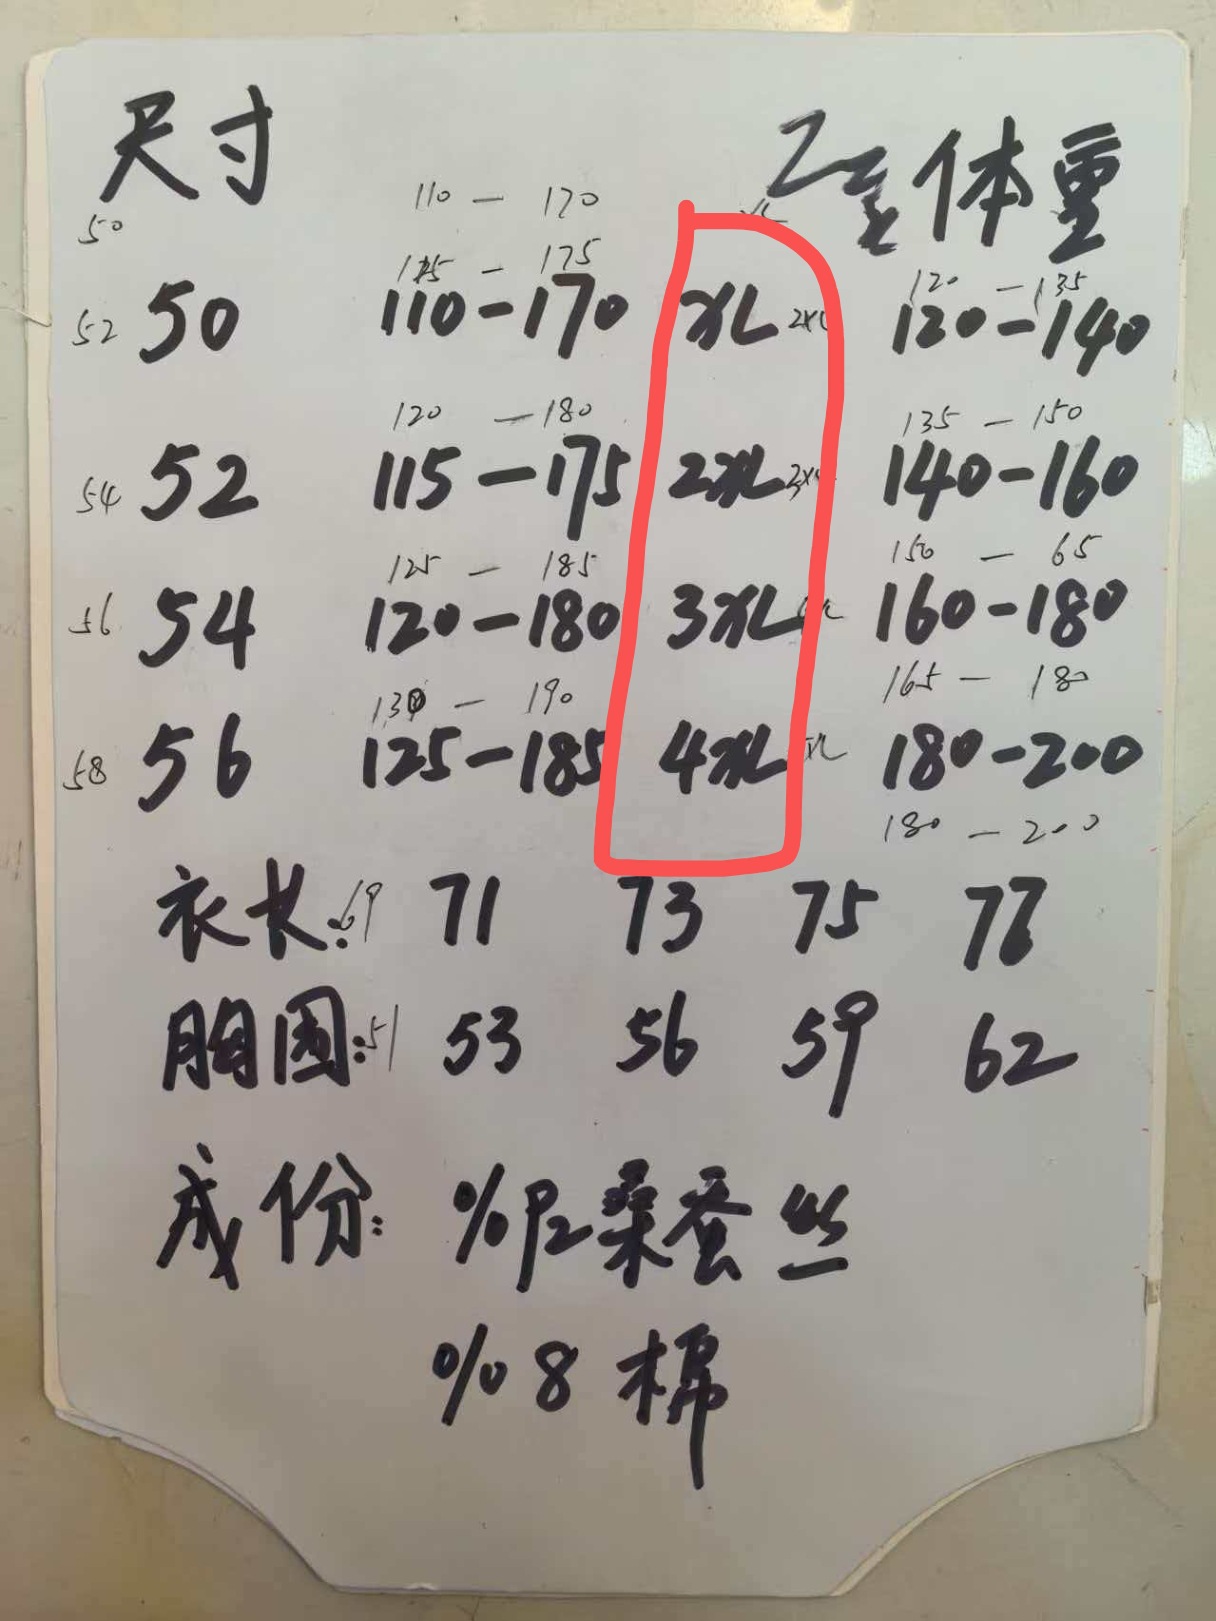 尺寸 体重
110 — 170
50
115 — 175 120 — 135
52 50 110-170 XL 2XL 120-140
120 — 180 135 — 150
54 52 115-175 2XL 3XL 140-160
125 — 185 150 — 65
56 54 120-180 3XL 160-180
130 — 190 165 — 180
58 56 125-185 4XL 180-200
180 — 200
衣长:69 71 73 75 77
胸围:51 53 56 59 62
成份: %92桑蚕丝
%8 棉